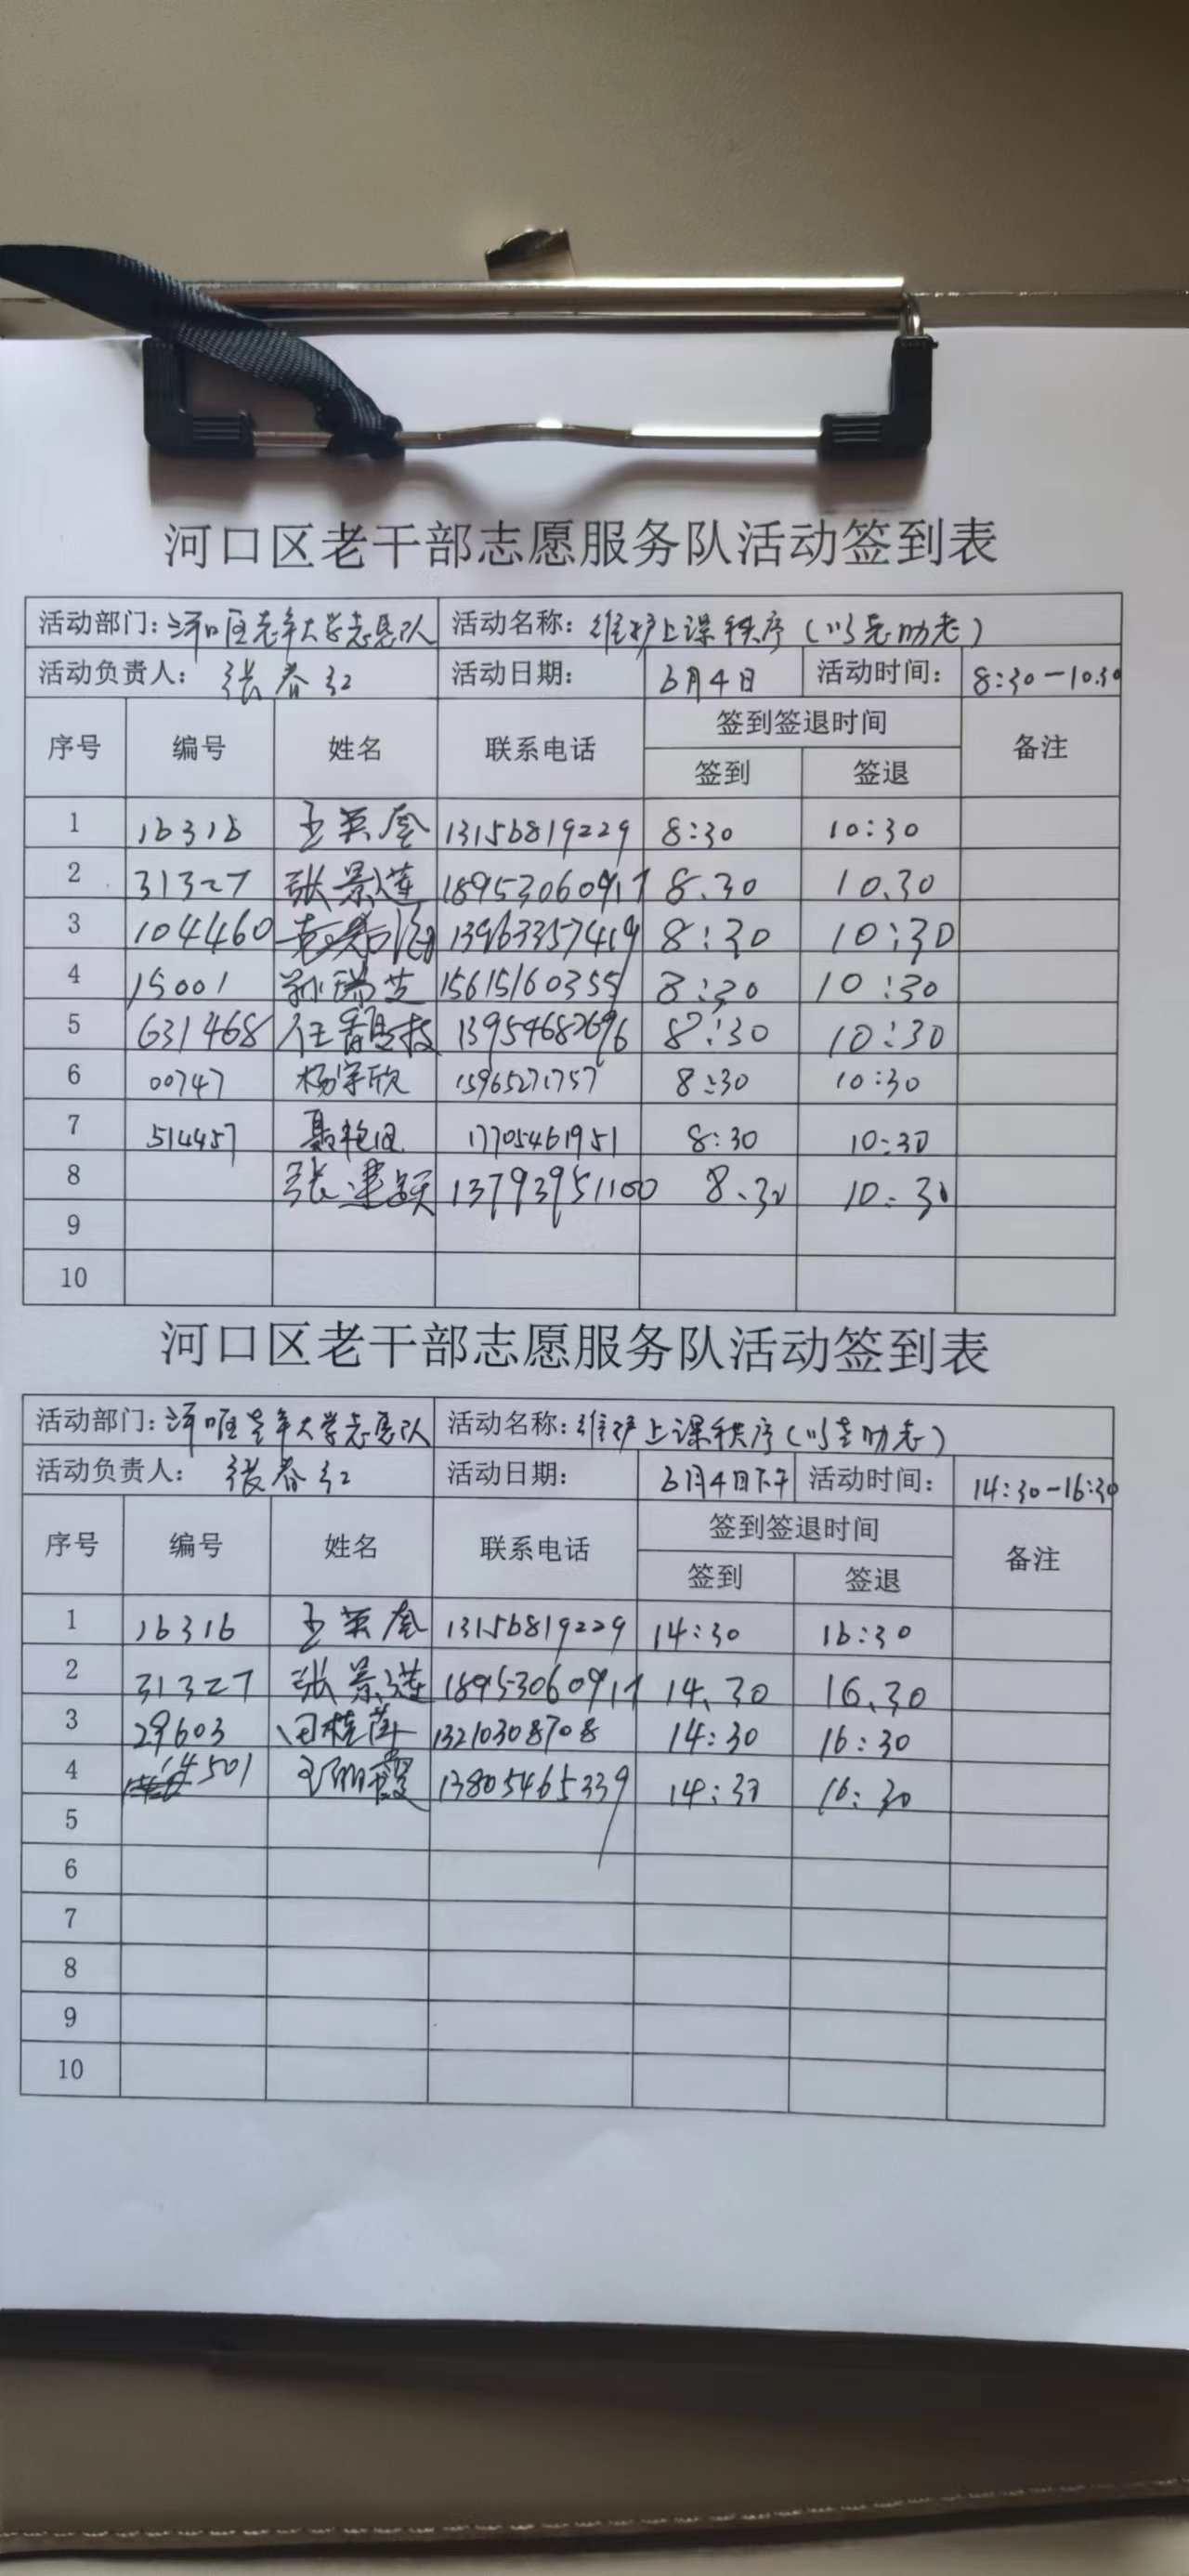 河口区老干部志愿服务队活动签到表
活动部门: 河口区老年大学志愿队 活动名称: 维护上课秩序(以老助老)
活动负责人: 张春红 活动日期: 6月4日 活动时间: 8:30-10:30
序号 编号 姓名 联系电话 签到签退时间 备注
签到 签退
1 16316 王英奎 13156819229 8:30 10:30
2 31327 张景莲 18953060917 8.30 10.30
3 104460 13963357419 8:30 10:30
4 15001 孙瑞芝 15615160355 8:30 10:30
5 631468 任 13954682696 8:30 10:30
6 00747 杨宇欣 15965271757 8:30 10:30
7 514457 聂艳 17705461951 8:30 10:30
8 张建颖 13793951100 8.30 10:30
9
10
河口区老干部志愿服务队活动签到表
活动部门: 河口区老年大学志愿队 活动名称: 维护上课秩序(以老助老)
活动负责人: 张春红 活动日期: 6月4日下午 活动时间: 14:30-16:30
序号 编号 姓名 联系电话 签到签退时间 备注
签到 签退
1 16316 王英奎 13156819229 14:30 16:30
2 31327 张景莲 18953060917 14.30 16.30
3 29603 田桂萍 13210308708 14:30 16:30
4 14501 王丽霞 13805465339 14:30 16:30
5
6
7
8
9
10